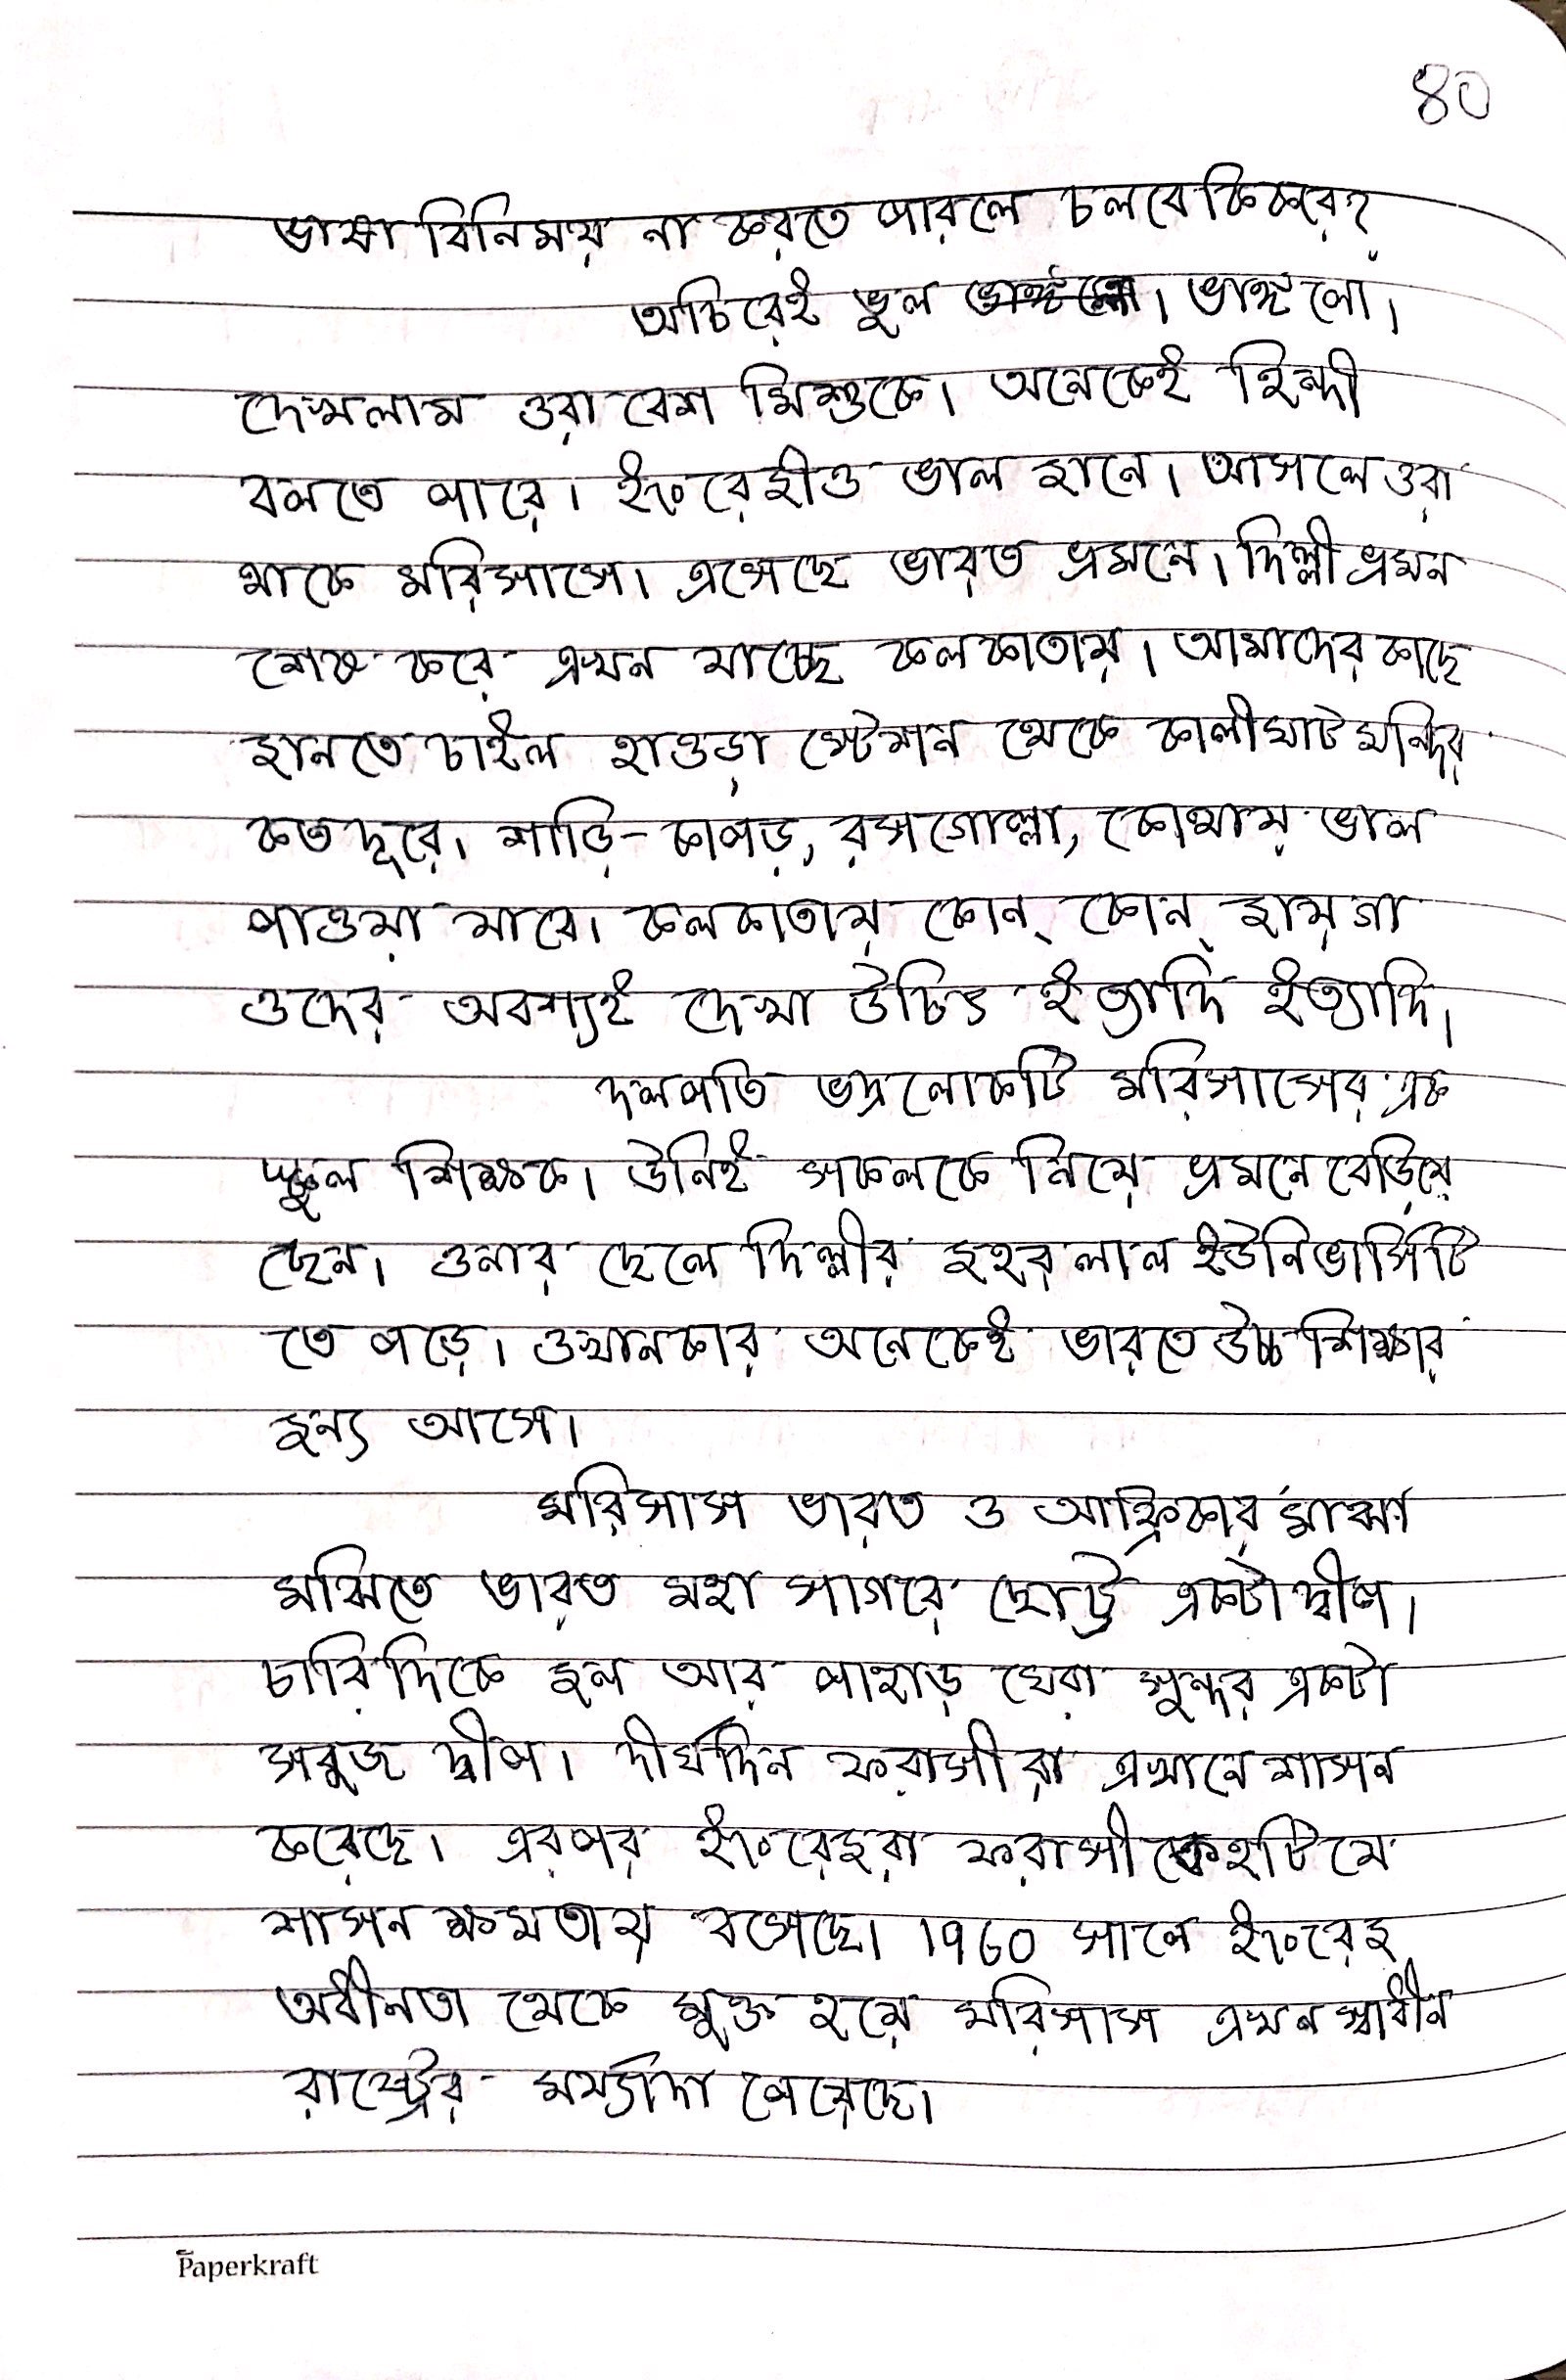 80
ভাষা বিনিময় না করতে পারলে চলবে কি করে?
অচিরেই ভুল ভাঙ্গলো। ভাঙ্গলো।
দেখলাম ওরা বেশ মিশুকে। অনেকেই হিন্দী
বলতে পারে। ইংরেজীও ভাল জানে। আসলে ওরা
থাকে মরিসাসে। এসেছে ভারত ভ্রমনে। দিল্লী ভ্রমন
শেষ করে এখন যাচ্ছে কলকাতায়। আমাদের কাছে
জানতে চাইল হাওড়া স্টেশন থেকে কালীঘাট মন্দির
কত দূরে। শাড়ি-কাপড়, রসগোল্লা, কোথায় ভাল
পাওয়া যাবে। কলকাতায় কোন্ কোন্ জায়গা
ওদের অবশ্যই দেখা উচিৎ ইত্যাদি ইত্যাদি।
দলপতি ভদ্রলোকটি মরিসাসের এক
স্কুল শিক্ষক। উনিই সকলকে নিয়ে ভ্রমনে বেড়িয়ে
ছেন। ওনার ছেলে দিল্লীর জহরলাল ইউনিভার্সিটি
তে পড়ে। ওখানকার অনেকেই ভারতে উচ্চ শিক্ষার
জন্য আসে।
মরিসাস ভারত ও আফ্রিকার মাঝা
মঝিতে ভারত মহা সাগরে ছোট্ট একটা দ্বীপ।
চারিদিকে জল আর পাহাড় ঘেরা সুন্দর একটা
সবুজ দ্বীপ। দীর্ঘদিন ফরাসীরা এখানে শাসন
করেছে। এরপর ইংরেজরা ফরাসীকে হটিয়ে
শাসন ক্ষমতায় বসেছে। 1960 সালে ইংরেজ
অধীনতা থেকে মুক্ত হয়ে মরিসাস এখন স্বাধীন
রাষ্ট্রের মর্য্যাদা পেয়েছে।
Paperkraft